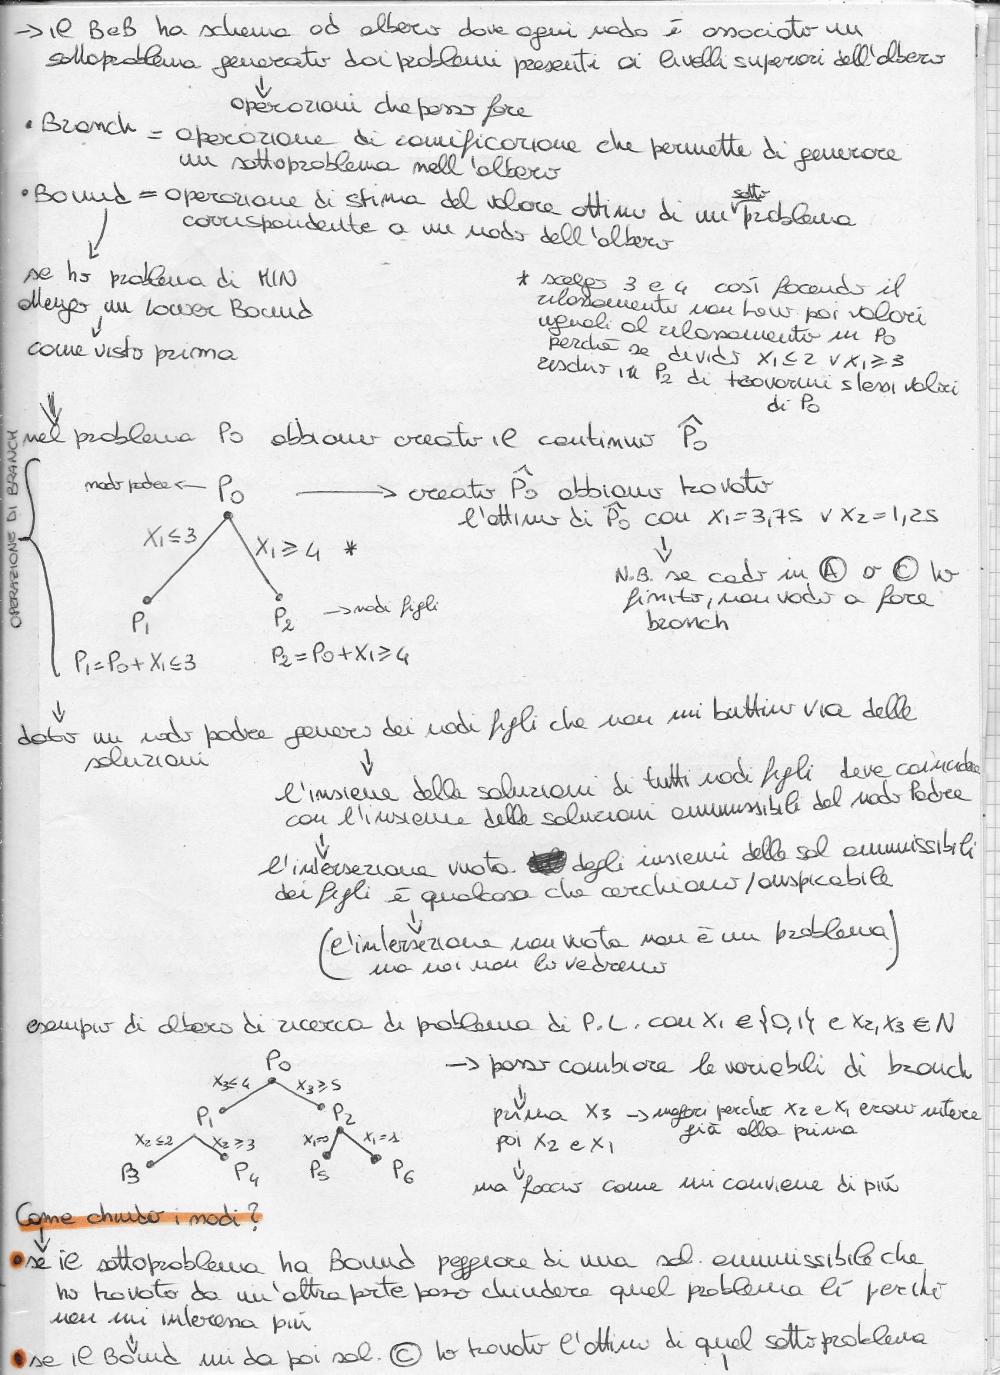 → il BeB ha schema ad albero dove ogni nodo è associato un
sottoproblema generato dai problemi presenti ai livelli superiori dell'albero
↓
operazioni che posso fare
• Branch = operazione di ramificazione che permette di generare
un sottoproblema nell'albero
• Bound = operazione di stima del valore ottimo di un sottoproblema
corrispondente a un nodo dell'albero
se ho problema di MIN
ottengo un Lower Bound
↓
come visto prima
* scelgo 3 e 4 così facendo il
rilassamento non ho poi valori
uguali al rilassamento in P0
perché se divido x1≤2 v x1≥3
rischio in P2 di trovarmi stessi valori
di P0
nel problema P0 abbiamo creato il continuo P̂0
OPERAZIONE DI BRANCH
nodo padre ← P0
x1≤3
x1≥4 *
P1
P2 → nodi figli
P1=P0+x1≤3
P2=P0+x1≥4
→ creato P̂0 abbiamo trovato
l'ottimo di P̂0 con x1=3,75 v x2=1,25
↓
N.B. se cado in Ⓐ o Ⓒ ho
finito, non vado a fare
branch
↓
dato un nodo padre genero dei nodi figli che non mi buttino via delle
soluzioni
↓
l'insieme delle soluzioni di tutti nodi figli deve coincidere
con l'insieme delle soluzioni ammissibili del nodo Padre
↓
l'intersezione vuota degli insiemi delle sol ammissibili
dei figli è qualcosa che cerchiamo/auspicabile
↓
(l'intersezione non vuota non è un problema)
ma noi non lo vedremo
esempio di albero di ricerca di problema di P.L. con x1 ∈ {0,1} e x2,x3 ∈ N
P0
x3≤4 x3≥5
P1 P2
x2≤2 x2≥3 x1=0 x1=1
P3 P4 P5 P6
→ posso cambiare le variabili di branch
↓
prima x3 → magari perché x2 e x1 erano intere
già alla prima
poi x2 e x1
↓
ma faccio come mi conviene di più
Come chiudo i nodi?
↓
• se il sottoproblema ha Bound peggiore di una sol. ammissibile che
ho trovato da un'altra parte posso chiudere quel problema lì perché
non mi interessa più
↓
• se il Bound mi da poi sol. Ⓒ ho trovato l'ottimo di quel sottoproblema